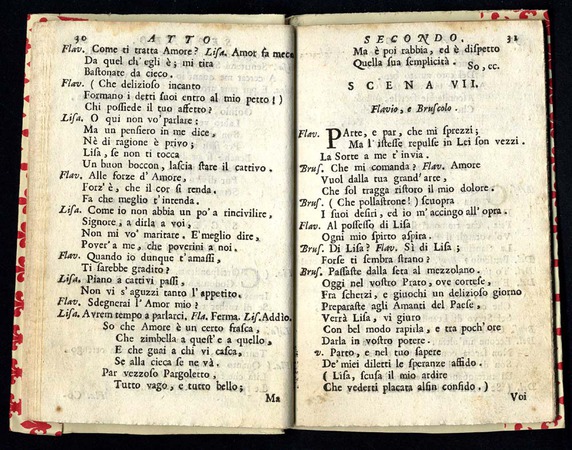 30 ATTO
Flav. Come ti tratta Amore? Lisa. Amor fa meco
Da quel ch'egli è; mi tira
Bastonate da cieco.
Flav. (Che delizioso incanto
Formano i detti suoi entro al mio petto!)
Chi possiede il tuo affetto?
Lisa. O qui non vo' parlare:
Ma un pensiero in me dice,
Nè di ragione è privo;
Lisa, se non ti tocca
Un buon boccon, lascia stare il cattivo.
Flav. Alle forze d'Amore,
Forz'è, che il cor si renda.
Fa che meglio t'intenda.
Lisa. Come io non abbia un po' a rincivilire,
Signore, a dirla a voi,
Non mi vo' maritare. E'meglio dire,
Pover'a me, che poverini a noi.
Flav. Quanto io dunque t'amassi,
Ti sarebbe gradito?
Lisa. Piano a cattivi passi,
Non vi s'aguzzi tanto l'appetito.
Flav. Sdegnerai l'Amor mio?
Lisa. Avrem tempo a parlarci, Fla. Ferma. Lis. Addio.
So che Amore è un certo frasca,
Che zimbella a quest'e a quello,
E che guai a chi vi casca,
Se alla cieca se ne và.
Par vezzoso Pargoletto,
Tutto vago, e tutto bello;
Ma
SECONDO. 31
Ma è poi rabbia, ed è dispetto
Quella sua semplicità. So, cc.
SCENA VII.
Flavio, e Bruscolo.
Flav. PArte, e par, che mi sprezzi;
Ma l'istesse repulse in Lei son vezzi.
La Sorte a me t'invia.
Brus. Che mi comanda? Flav. Amore
Vuol dalla tua grand'arte,
Che sol tragga ristoro il mio dolore.
Brus. (Che pollastrone!) scuopra
I suoi desiri, ed io m'accingo all'opra.
Flav. Al possesso di Lisa
Ogni mio spirto aspira.
Brus. Di Lisa? Flav. Sì di Lisa;
Forse ti sembra strano?
Brus. Passaste dalla seta al mezzolano.
Oggi nel vostro Prato, ove cortese,
Fra scherzi, e giuochi un delizioso giorno
Preparaste agli Amanti del Paese,
Verrà Lisa, vi giuro
Con bel modo rapirla, e tra poch'ore
Darla in vostro potere.
v. Parto, e nel tuo sapere
De' miei diletti le speranze affido.
(Lisa, scusa il mio ardire
Che vederti placata alfin confido.)
Voi